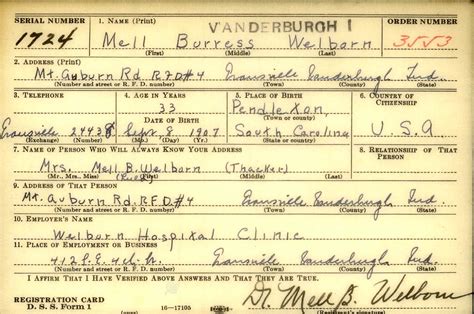 VANDERBURGH 1
SERIAL NUMBER 1. NAME (Print) ORDER NUMBER
1724 Mell Burress Welborn 3553
(First) (Middle) (Last)
2. ADDRESS (Print)
Mt. Auburn Rd. R.F.D#4 Evansville Vanderburgh Ind.
(Number and street or R. F. D. number) (Town) (County) (State)
3. TELEPHONE 4. AGE IN YEARS 5. PLACE OF BIRTH 6. COUNTRY OF CITIZENSHIP
33 Pendleton,
DATE OF BIRTH (Town or county)
Evansville 24438 Sept. 8 1907 South Carolina U.S.A
(Exchange) (Number) (Mo.) (Day) (Yr.) (State or country)
7. NAME OF PERSON WHO WILL ALWAYS KNOW YOUR ADDRESS 8. RELATIONSHIP OF THAT PERSON
Mrs. Mell B. Welborn (Thacker)
(Mr., Mrs., Miss) (First) (Middle) (Last)
9. ADDRESS OF THAT PERSON
Mt. Auburn Rd. R.F.D.#4 Evansville Vanderburgh Ind.
(Number and street or R. F. D. number) (Town) (County) (State)
10. EMPLOYER'S NAME
Welborn Hospital Clinic
11. PLACE OF EMPLOYMENT OR BUSINESS
412 S.E. 4th St. Evansville Vanderburgh Ind.
(Number and street or R. F. D. number) (Town) (County) (State)
I AFFIRM THAT I HAVE VERIFIED ABOVE ANSWERS AND THAT THEY ARE TRUE.
REGISTRATION CARD
D. S. S. Form 1 16—17105 Dr. Mell B. Welborn
(Registrant's signature)